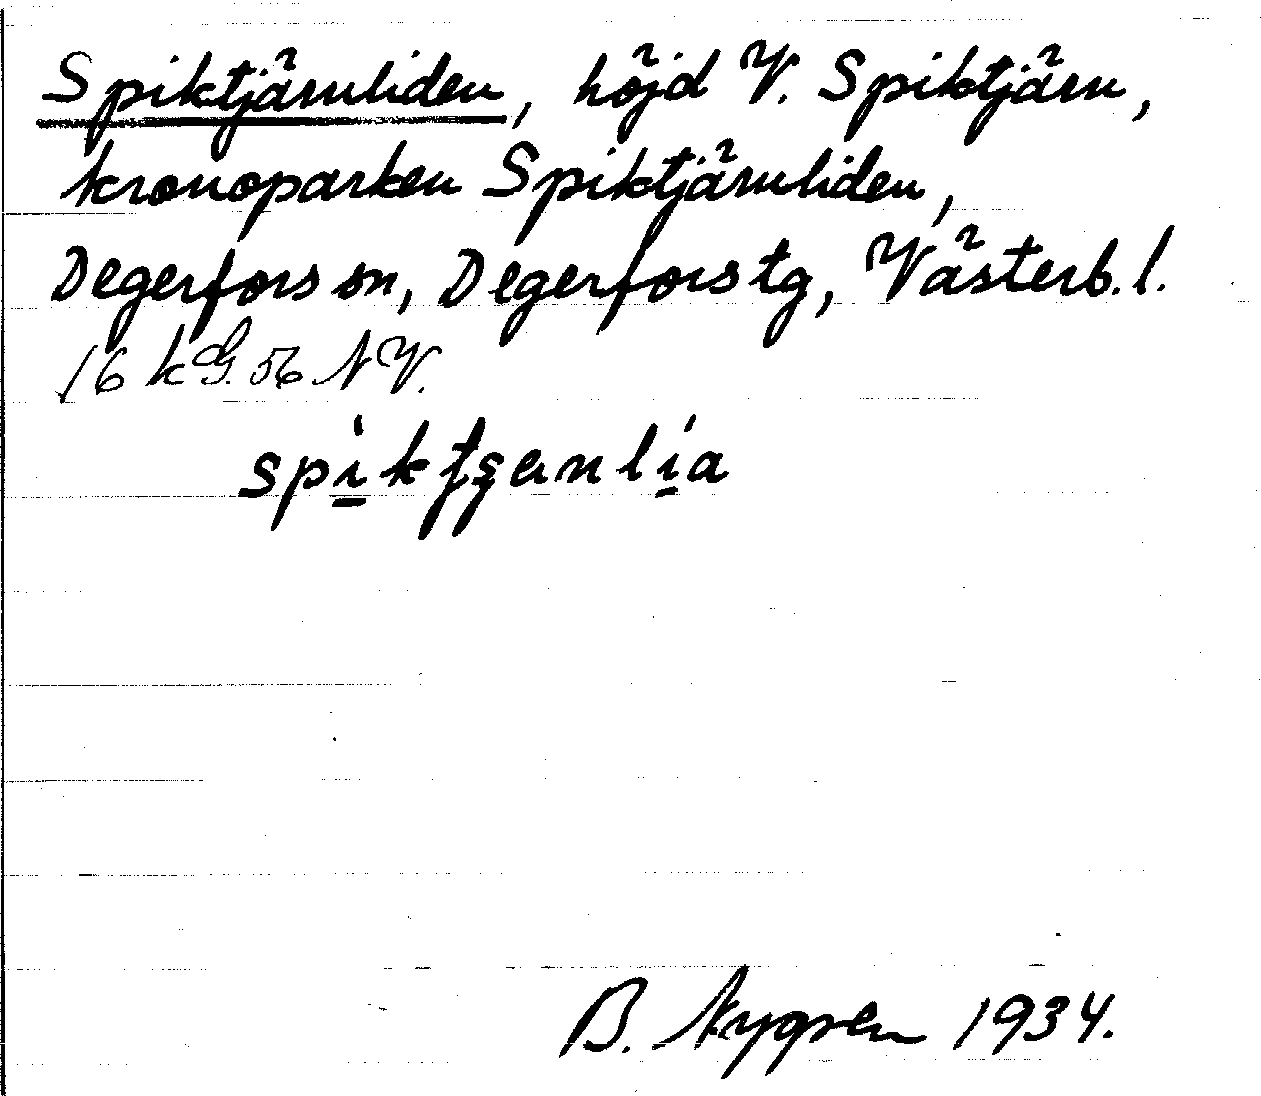 Spiktjärnliden, höjd V. Spiktjärn,
kronoparken Spiktjärnliden,
Degerfors sn, Degerfors tg, Västerb. l.
16 kG. 56 NV.
spiktʒanlia
B. Nygren 1934.